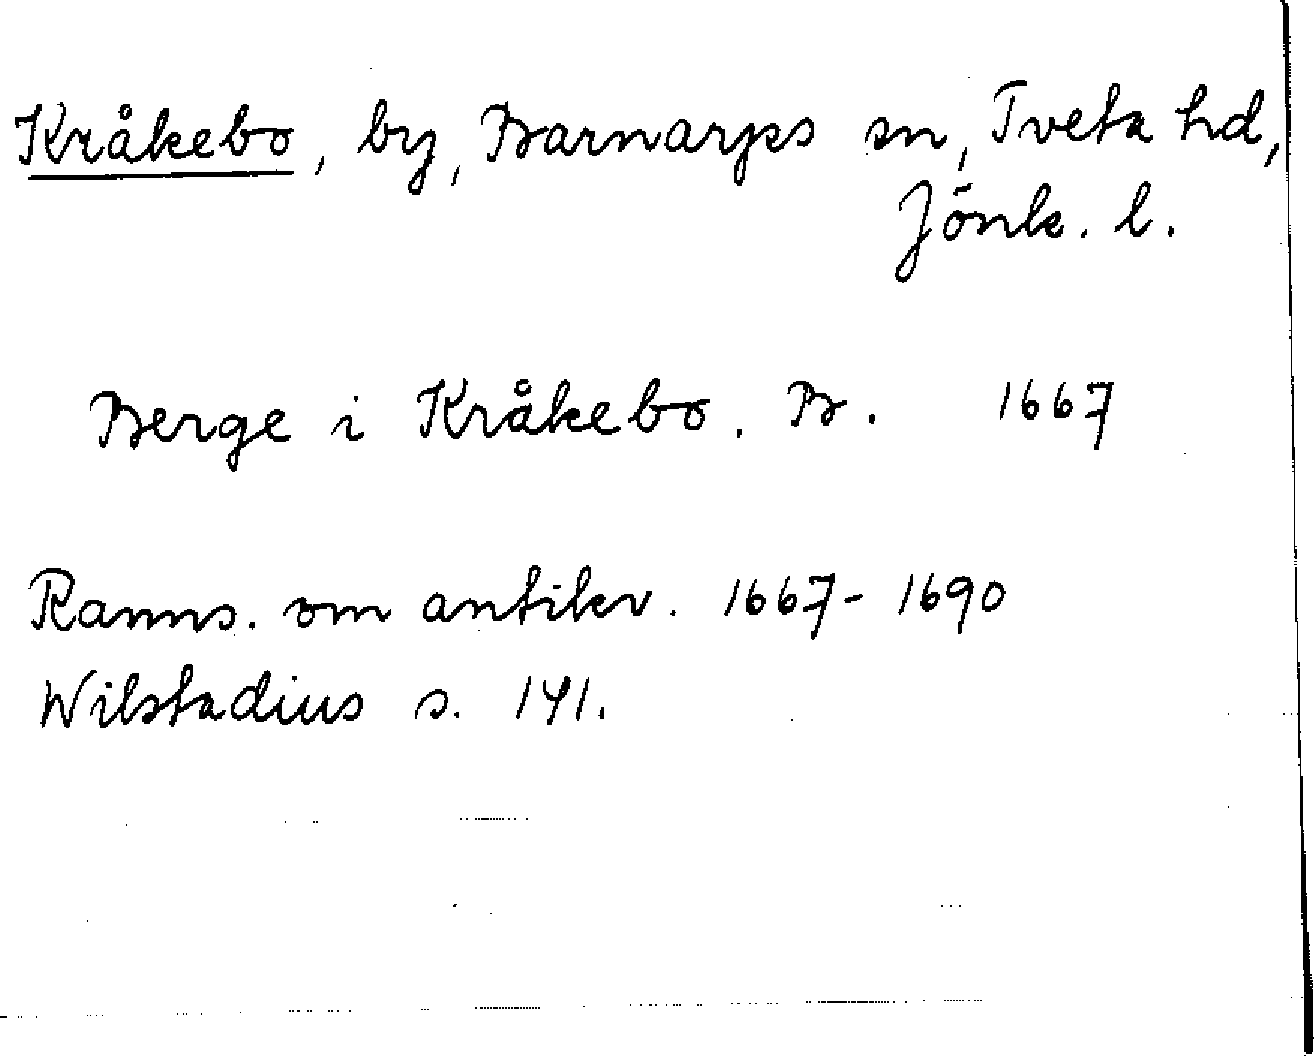 Kråkebo, by, Barnarps sn, Tveta hd,
Jönk. l.
Berge i Kråkebo. B. 1667
Ranns. om antikv. 1667-1690
Wilstadius s. 141.